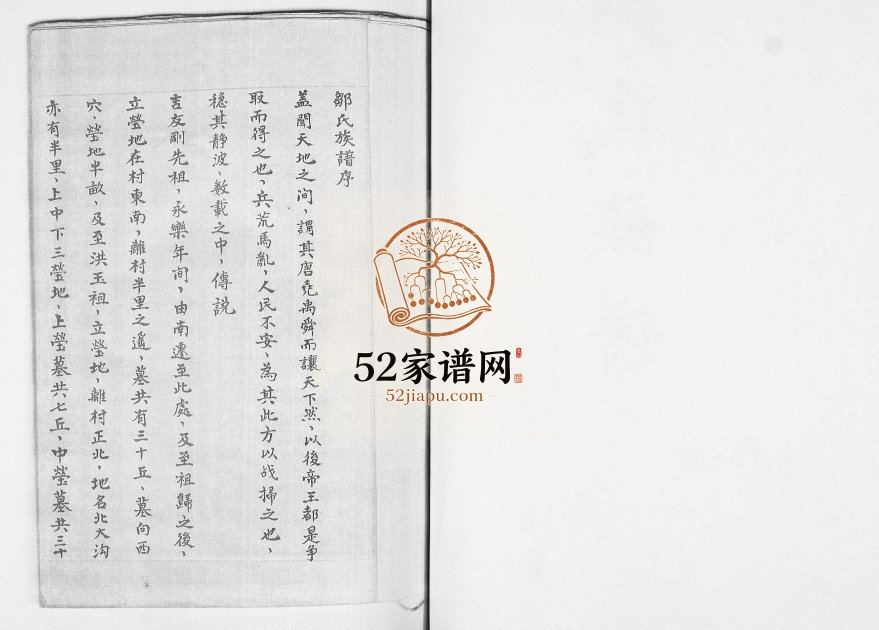 鄒氏族譜序
蓋聞天地之间，謂其唐堯禹舜而讓天下然，以後帝王都是争
取而得之也，兵荒馬亂，人民不安，為其此方以战掃之也，
穏其静波，数載之中，傳説
言友剛先祖，永樂年间，由南遷至此處，及至祖歸之後，
立瑩地在村東南，離村半里之遙，墓共有三十丘，墓向西
穴，瑩地半畝，及至洪玉祖，立瑩地，離村正北，地名北大沟
亦有半里，上中下三瑩地，上瑩墓共七丘，中瑩墓共三十
52家谱网
52jiapu.com